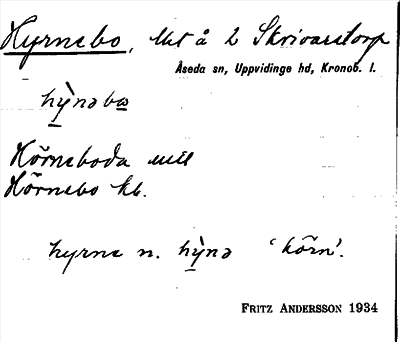 Hyrnebo, lht å 2 Skrivaretorp
Åseda sn, Uppvidinge hd, Kronob. l.
hỳnəbo
Hörneboda
Hörnebo kb.
hyrne n. hỳnə 'hörn'.
FRITZ ANDERSSON 1934